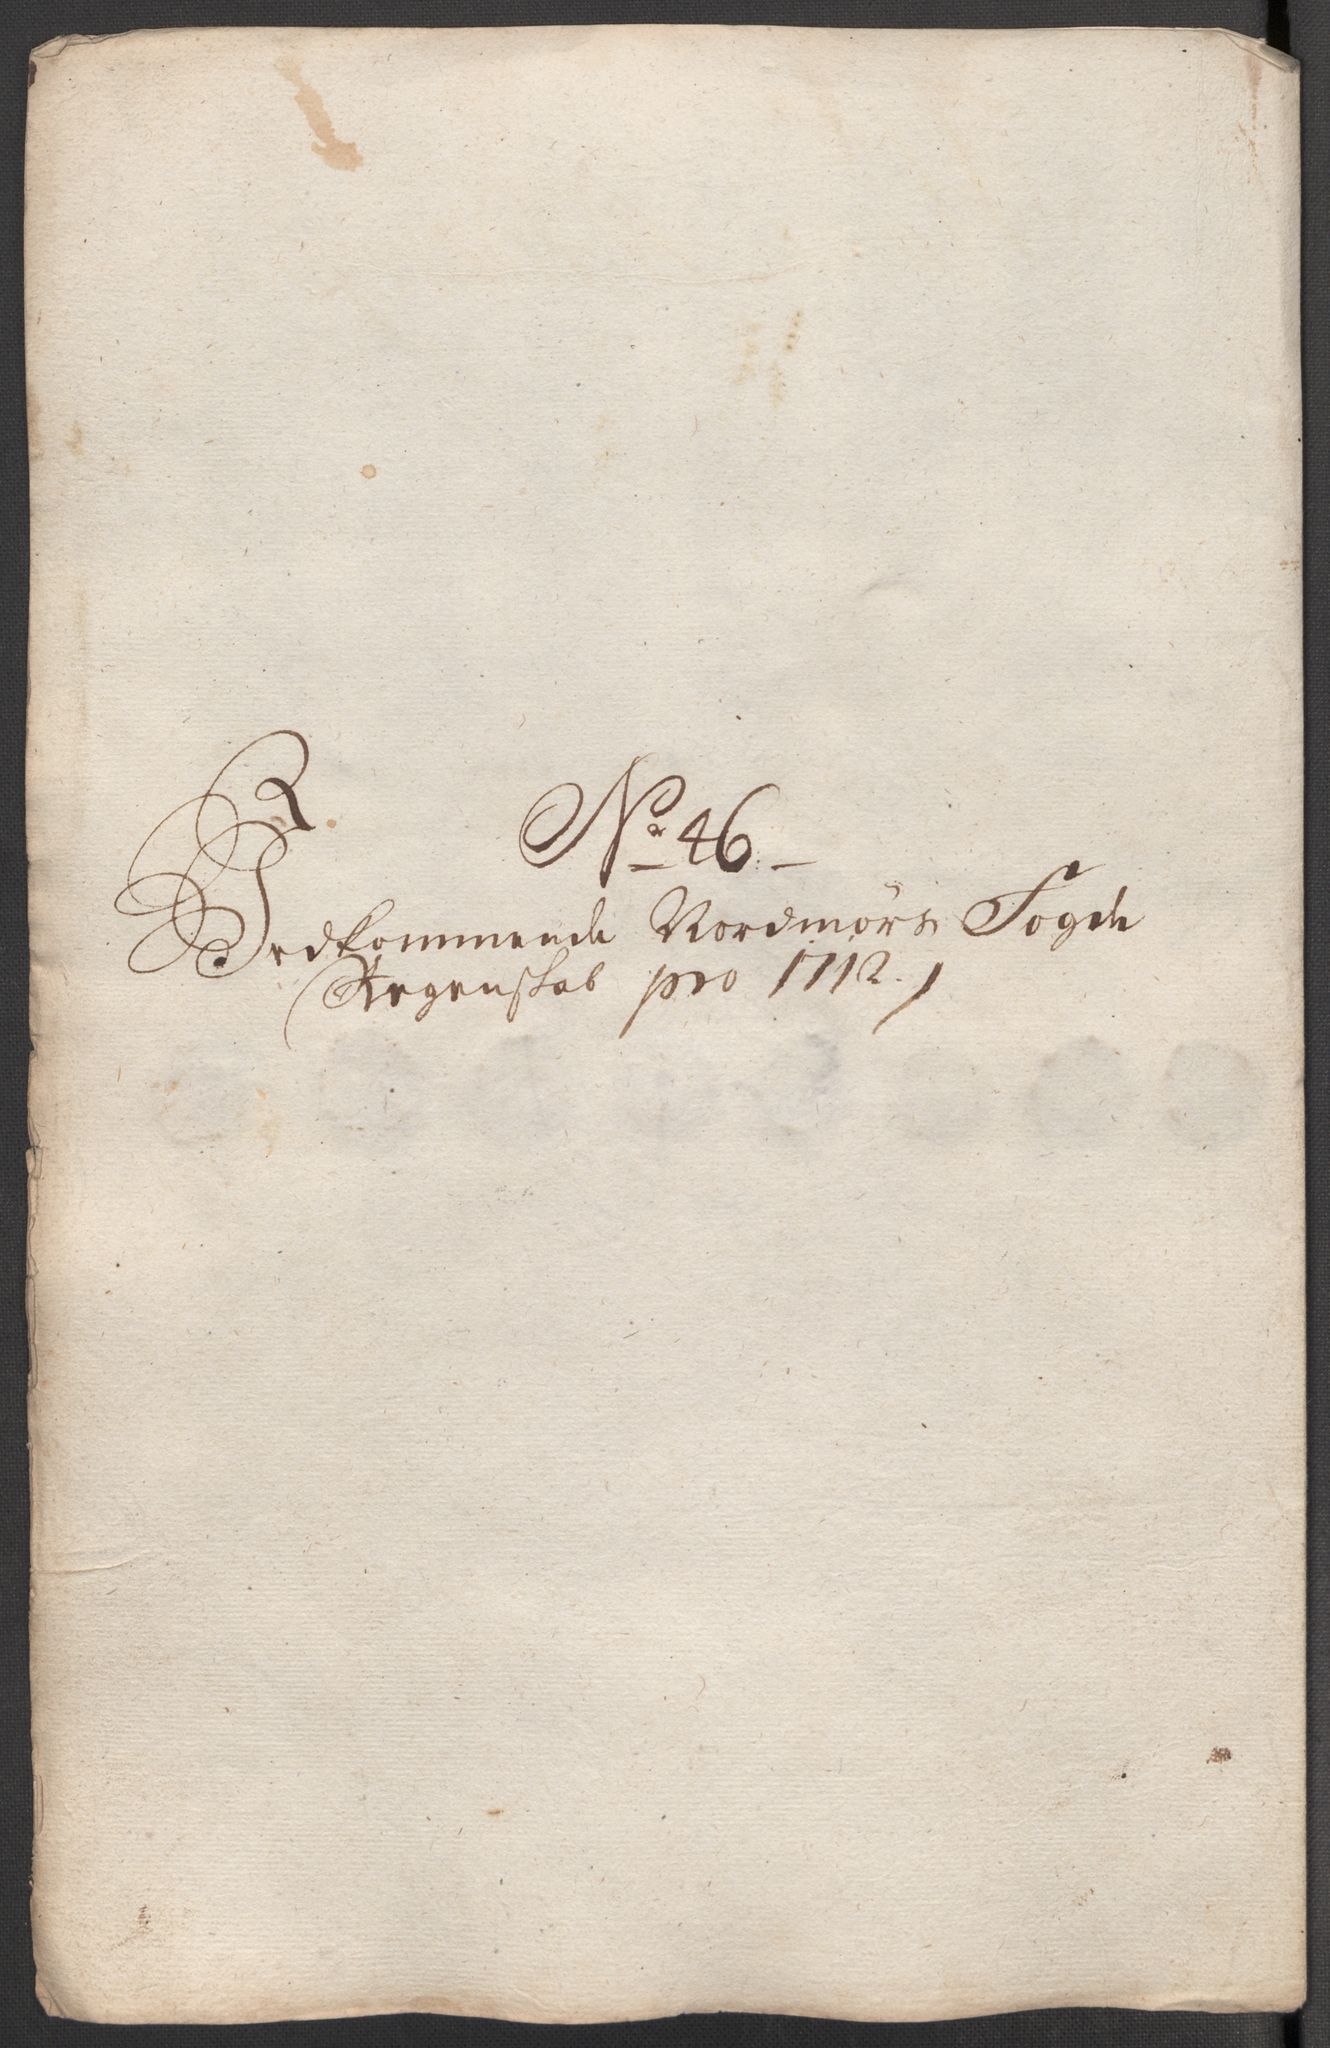 No 46.
Vedkommende Nordmörs Fogde
Regenskab pro 1712.